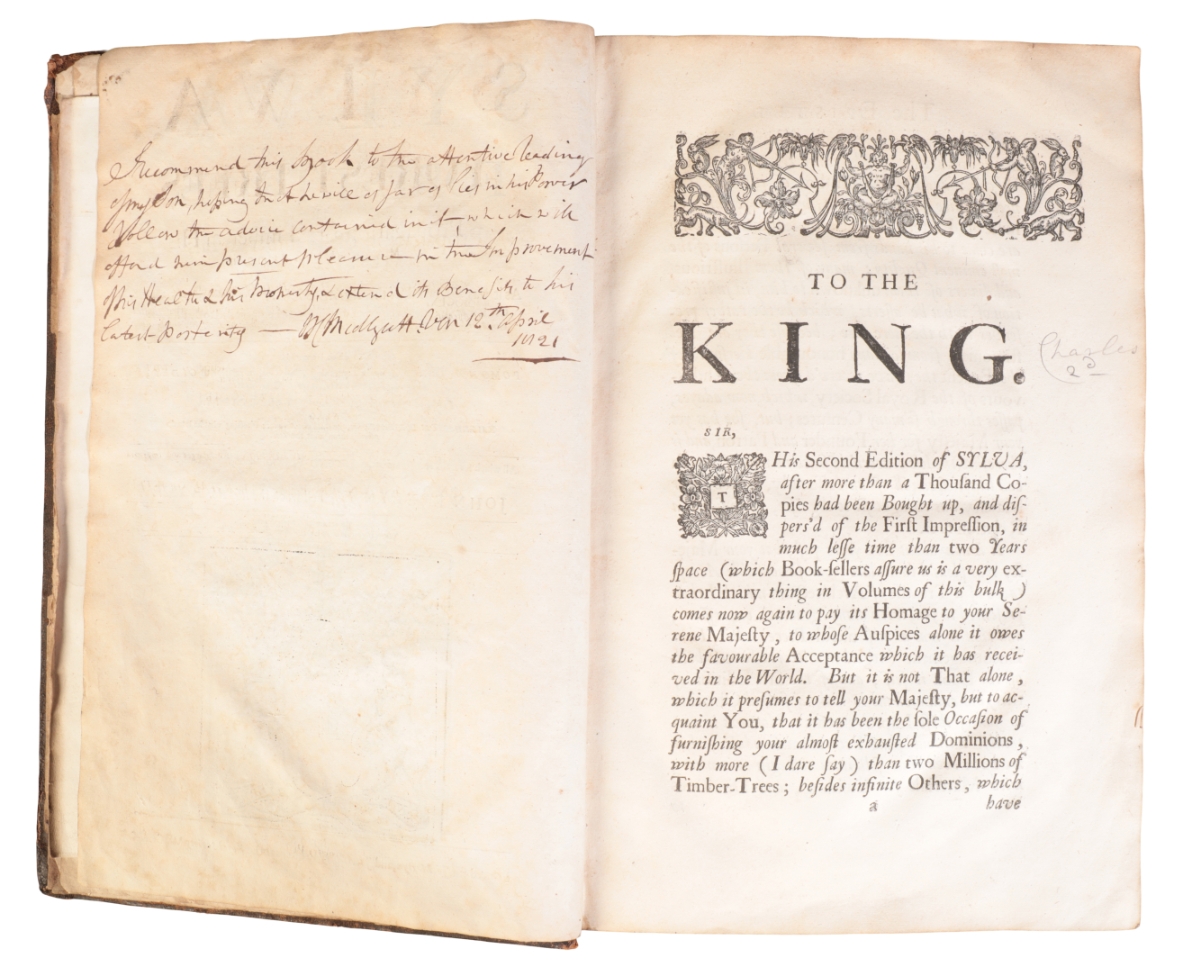 I recommend this book to the attentive reading
of my Son, hoping that he will as far as lies in his Power
follow the advice contained in it which will
afford him present pleasure in the Improvement
of his Health & his Property, & extend its Benefits to his
latest Posterity — Medlycott Ven 12th April
1821
TO THE
KING.
Charles
2D
SIR,
THis Second Edition of SYLVA,
after more than a Thouſand Co-
pies had been Bought up, and diſ-
pers'd of the Firſt Impreſſion, in
much leſſe time than two Years
ſpace (which Book-ſellers aſſure us is a very ex-
traordinary thing in Volumes of this bulk)
comes now again to pay its Homage to your Se-
rene Majeſty, to whoſe Auſpices alone it owes
the favourable Acceptance which it has recei-
ved in the World. But it is not That alone,
which it preſumes to tell your Majeſty, but to ac-
quaint You, that it has been the ſole Occaſion of
furniſhing your almoſt exhauſted Dominions,
with more (I dare ſay) than two Millions of
Timber-Trees; beſides infinite Others, which
a have